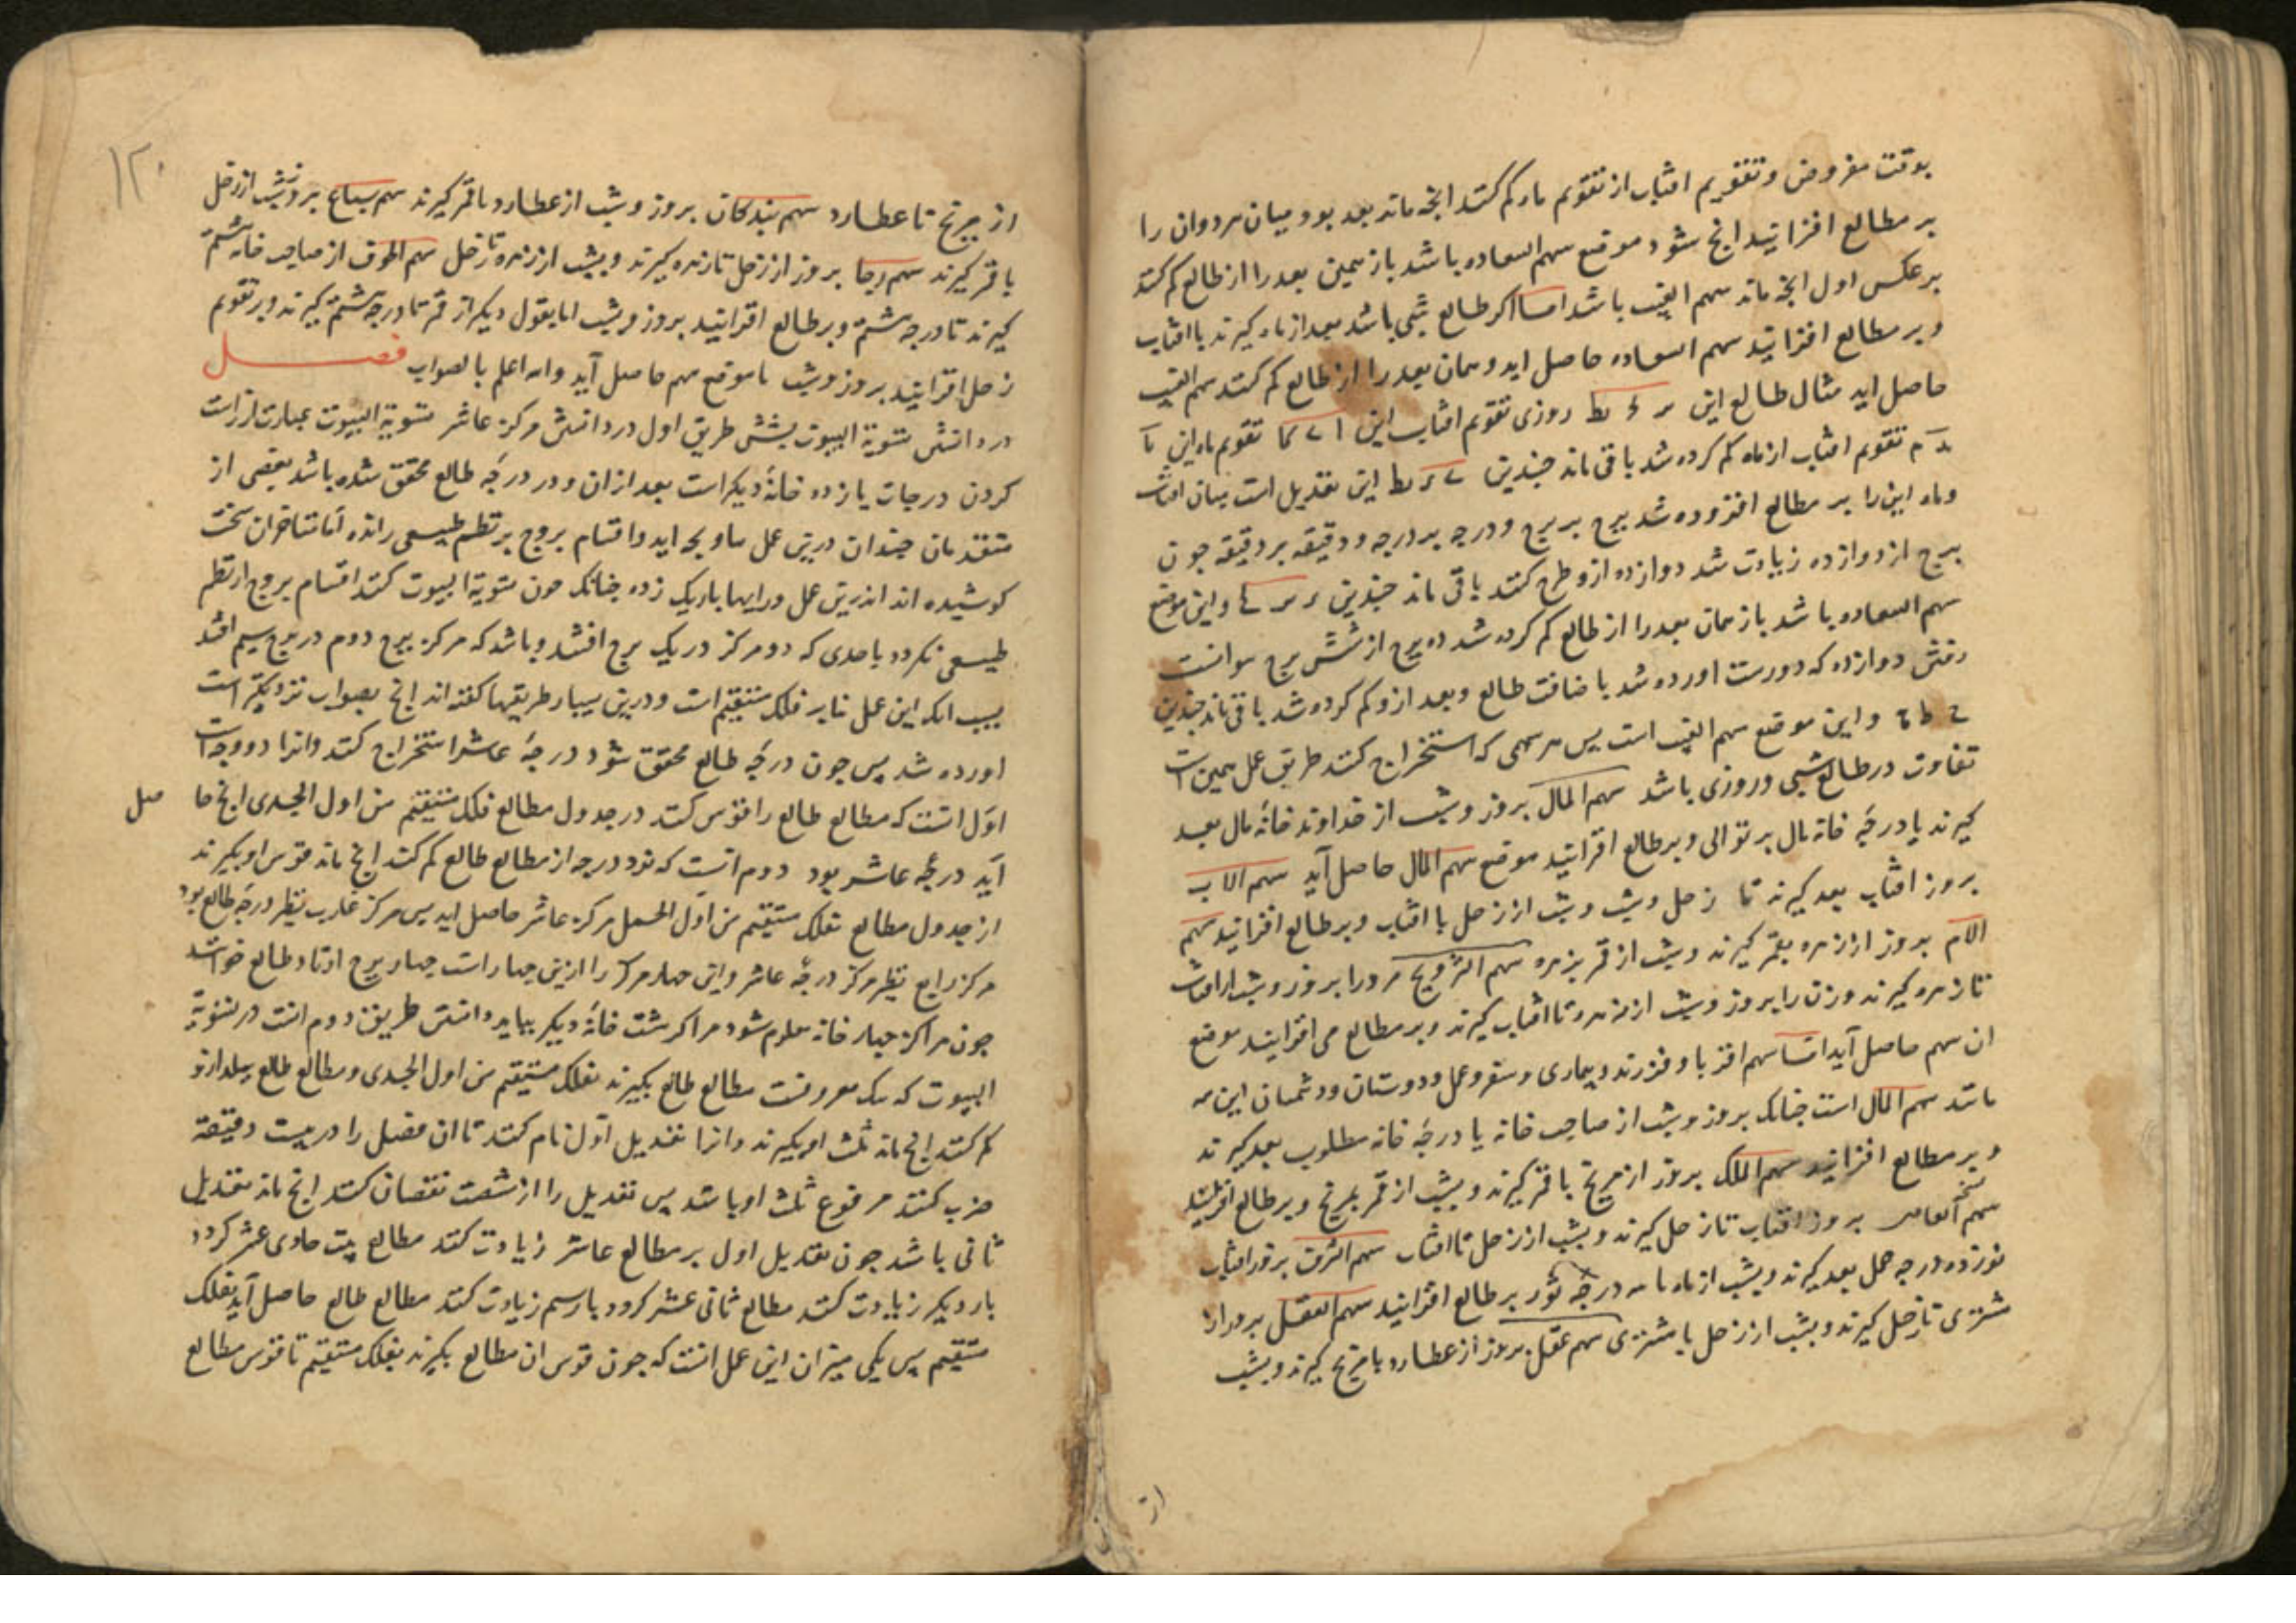 بوقت مفروض و تقویم افتاب از تقویم ماه کم کنند انچه ماند بعد بود میان هر دو ان را
بر مطالع افزایند انچ شود موقع سهم السعاده باشد باز همین بعد را از طالع کم کنند
بر عکس اول انچه ماند سهم الغیب باشد اما اکر طالع شبی باشد بعد از ماه کیرند با افتاب
و بر مطالع افزایند سهم السعاده حاصل اید و همان بعد را از طالع کم کنند سهم الغیب
حاصل اید مثال طالع این روزی تقویم افتاب این تقویم ماه این
تقویم افتاب از ماه کم کرده شد باقی ماند چندین این تعدیل است میان افتاب
و ماه این را بر مطالع افزوده شد برج بر برج و درجه بر درجه و دقیقه بر دقیقه چون
برج از دوازده زیادت شد دوازده ازو طرح کنند باقی ماند چندین و این موضع
سهم السعاده باشد باز همان بعد را از طالع کم کرده شد ده برج از شش برج
دوازده که دورست اورده شد با ضافت طالع و بعد ازو کم کرده شد باقی ماند چندین
و این موقع سهم الغیب است پس هر سهمی که استخراج کنند طریق عمل همین است
تفاوت در طالع شبی و روزی باشد سهم المال بروز و شب از خداوند خانهٔ مال بعد
کیرند یا درجهٔ خانه مال بر توالی و بر طالع افزایند موقع سهم المال حاصل آید سهم الاب
بروز افتاب بعد کیرند تا زحل و شب از زحل با افتاب و بر طالع افزایند سهم
الام بروز از زهره بقمر کیرند و شب از قمر بزهره سهم التزویج مرد را بروز و شب از افتاب
تا زهره کیرند و زن را بروز و شب از زهره تا افتاب کیرند و بر مطالع می افزایند موضع
ان سهم حاصل آید اما سهم اقربا و فرزند و بیماری و سفر و عمل و دوستان و دشمنان این همه
مانند سهم المال است چنانک بروز و شب از صاحب خانه یا درجهٔ خانه مطلوب بعد کیرند
و بر مطالع افزایند سهم الملک بروز از مریخ با قمر کیرند و بشب از قمر بمریخ و بر طالع افزایند
سهم بروز افتاب تا زحل کیرند و بشب از زحل تا افتاب سهم الشرف بروز افتاب
نوزده درجه حمل بعد کیرند و بشب از ماه تا سه درجهٔ ثور بر طالع افزایند سهم العقل بروز از
مشتری تا زحل کیرند و بشب از زحل با مشتری سهم عقل بروز از عطارد با مریخ کیرند و بشب
از
۱۲۰
از مریخ تا عطارد سهم بندکان بروز و شب از عطارد با قمر کیرند سهم سباع بروز و شب از زحل
با قمر کیرند سهم رجا بروز از زحل تا زهره کیرند و بشب از زهره تا زحل سهم الخوف از صاحب خانه هشتم
کیرند تا درجه هشتم و بر طالع افزایند بروز و شب اما بقول دیکر از قمر تا درجه هشتم کیرند و بر تقویم
زحل افزایند بروز و شب تا موقع سهم حاصل آید و الله اعلم بالصواب فصل
در دانستن تسویة البیوت بشش طریق اول در دانستن مرکز عاشر تسویة البیوت عبارت از راست
کردن درجات یازده خانهٔ دیکر است بعد ازان و در درجهٔ طالع محقق شده باشد بعضی از
متقدمان چندان درین عمل و اقسام بروج بر نظم طبیعی رانده اما متاخران سخت
کوشیده اند اندرین عمل و رایها باریک زده چنانک چون تسویة البیوت کنند اقسام بروج از نظم
طبیعی نکردد باحدی که دو مرکز در یک برج افتد و باشد که مرکز برج دوم در برج سیم افتد
بسبب انک این عمل بنا بر فلک مستقیم است و درین بسیار طریقها کفته اند انچ بصواب نزدیکتر است
اورده شد پس چون درجهٔ طالع محقق شود درجهٔ عاشر استخراج کنند و انرا دو وجه است
اول انست که مطالع طالع را قوس کنند در جدول مطالع فلک مستقیم من اول الجدی انچ حا صل
آید درجهٔ عاشر بود دوم انست که نود درجه از مطالع طالع کم کنند انچ ماند قوس او بکیرند
از جدول مطالع بفلک مستقیم من اول الحمل مرکز عاشر حاصل اید پس مرکز غارب نظیر درجهٔ طالع بود
مرکز رابع نظیر مرکز درجهٔ عاشر و این چهار مرکز را ازین چهار است چهار برج اوتاد طالع خوانند
چون مراکز چهار خانه معلوم شود مراکز هشت خانهٔ دیکر بباید دانستن طریق دوم انست در تسویة
البیوت که مطالع طالع بکیرند بفلک مستقیم من اول الجدی و مطالع طالع ببلد ازو
کم کنند انچ ماند ثلث او بکیرند و انرا تعدیل اول نام کنند تا ان فضل را در بیست دقیقه
ضرب کنند مرفوع ثلث او باشد پس تعدیل را از شصت نقصان کنند انچ ماند تعدیل
ثانی باشد چون تعدیل اول بر مطالع عاشر زیادت کنند مطالع بیت حادی عشر کردد
بار دیکر زیادت کنند مطالع ثانی عشر کردد بار سیم زیادت کنند مطالع طالع حاصل آید بفلک
مستقیم پس یکی میزان این عمل انست که چون قوس ان مطالع بکیرند بفلک مستقیم تا قوس مطالع